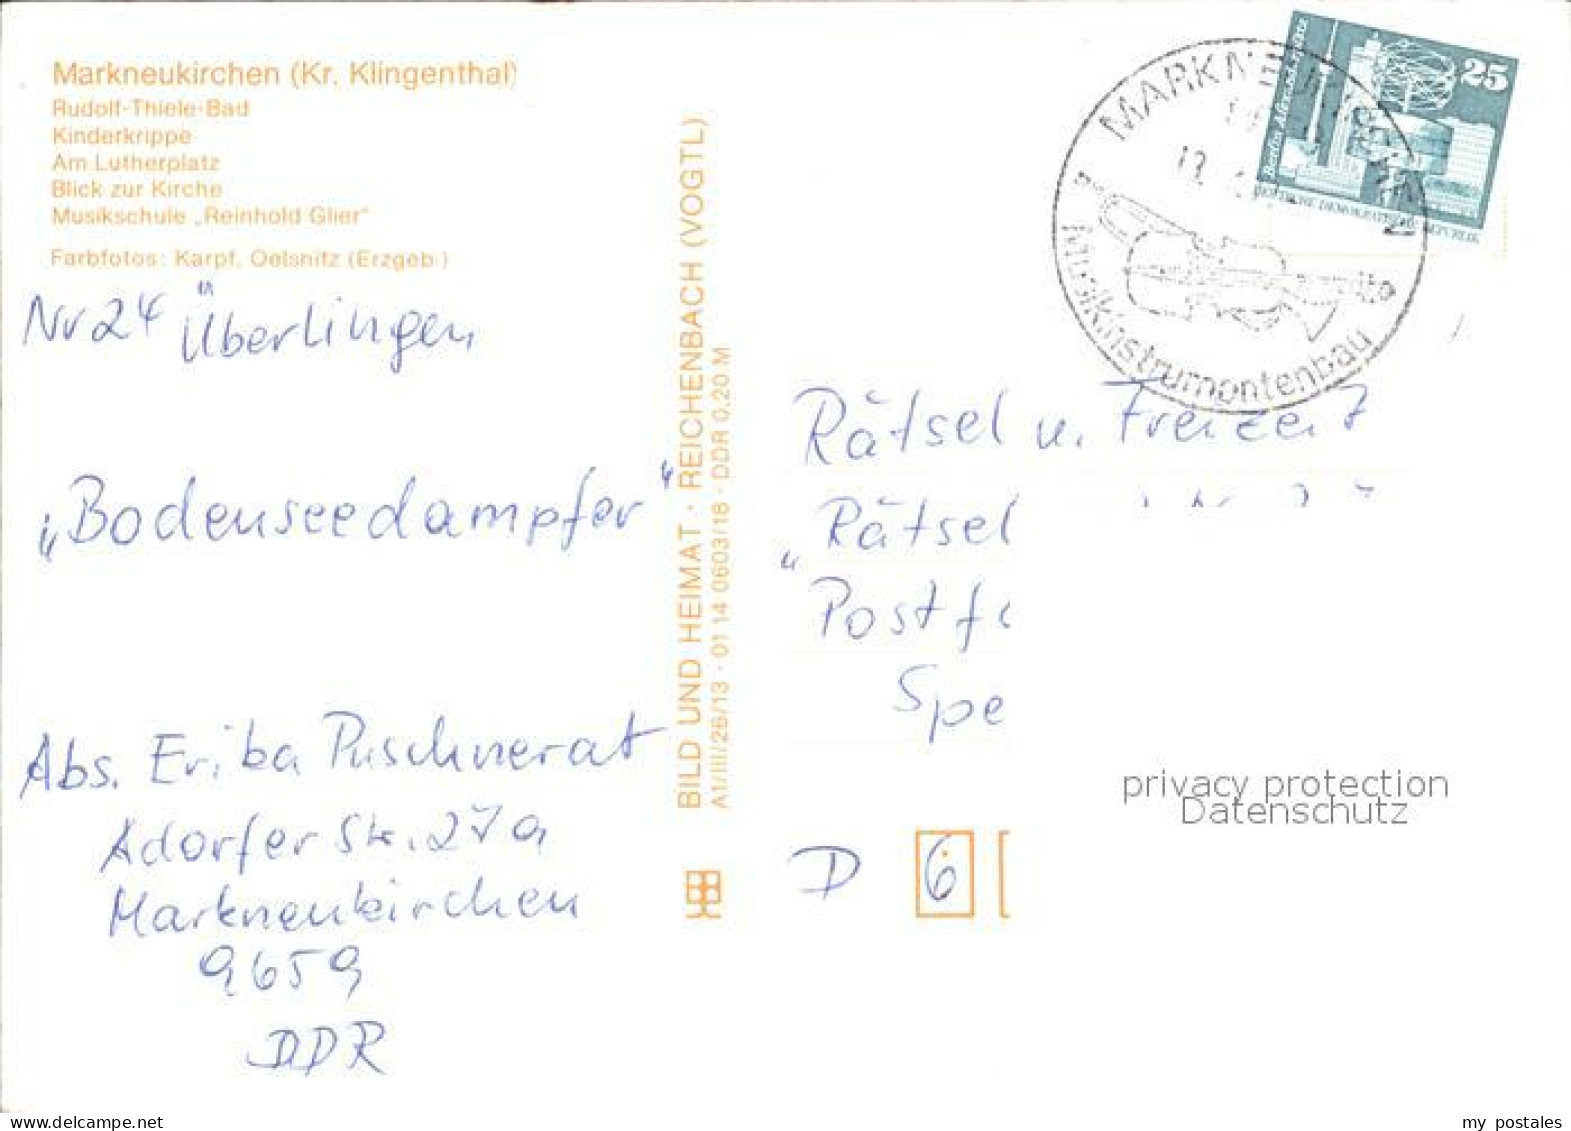 Markneukirchen (Kr. Klingenthal)
Rudolf-Thiele-Bad
Kinderkrippe
Am Lutherplatz
Blick zur Kirche
Musikschule „Reinhold Glier"
Farbfotos: Karpf, Oelsnitz (Erzgeb.)
Nr 24 Überlingen
„Bodenseedampfer"
Abs. Eriba Puschnerat
Adorfer Str. 27a
Markneukirchen
9659
DDR
BILD UND HEIMAT · REICHENBACH (VOGTL)
A1/III/26/13 · 01 14 0603/18 · DDR 0,20 M
25
Berlin, Alexanderplatz
DEUTSCHE DEMOKRATISCHE REPUBLIK
Musikinstrumentenbau
Rätsel u. Freizeit
„Rätsel
Postf
Spe
D 6
privacy protection
Datenschutz
my postales